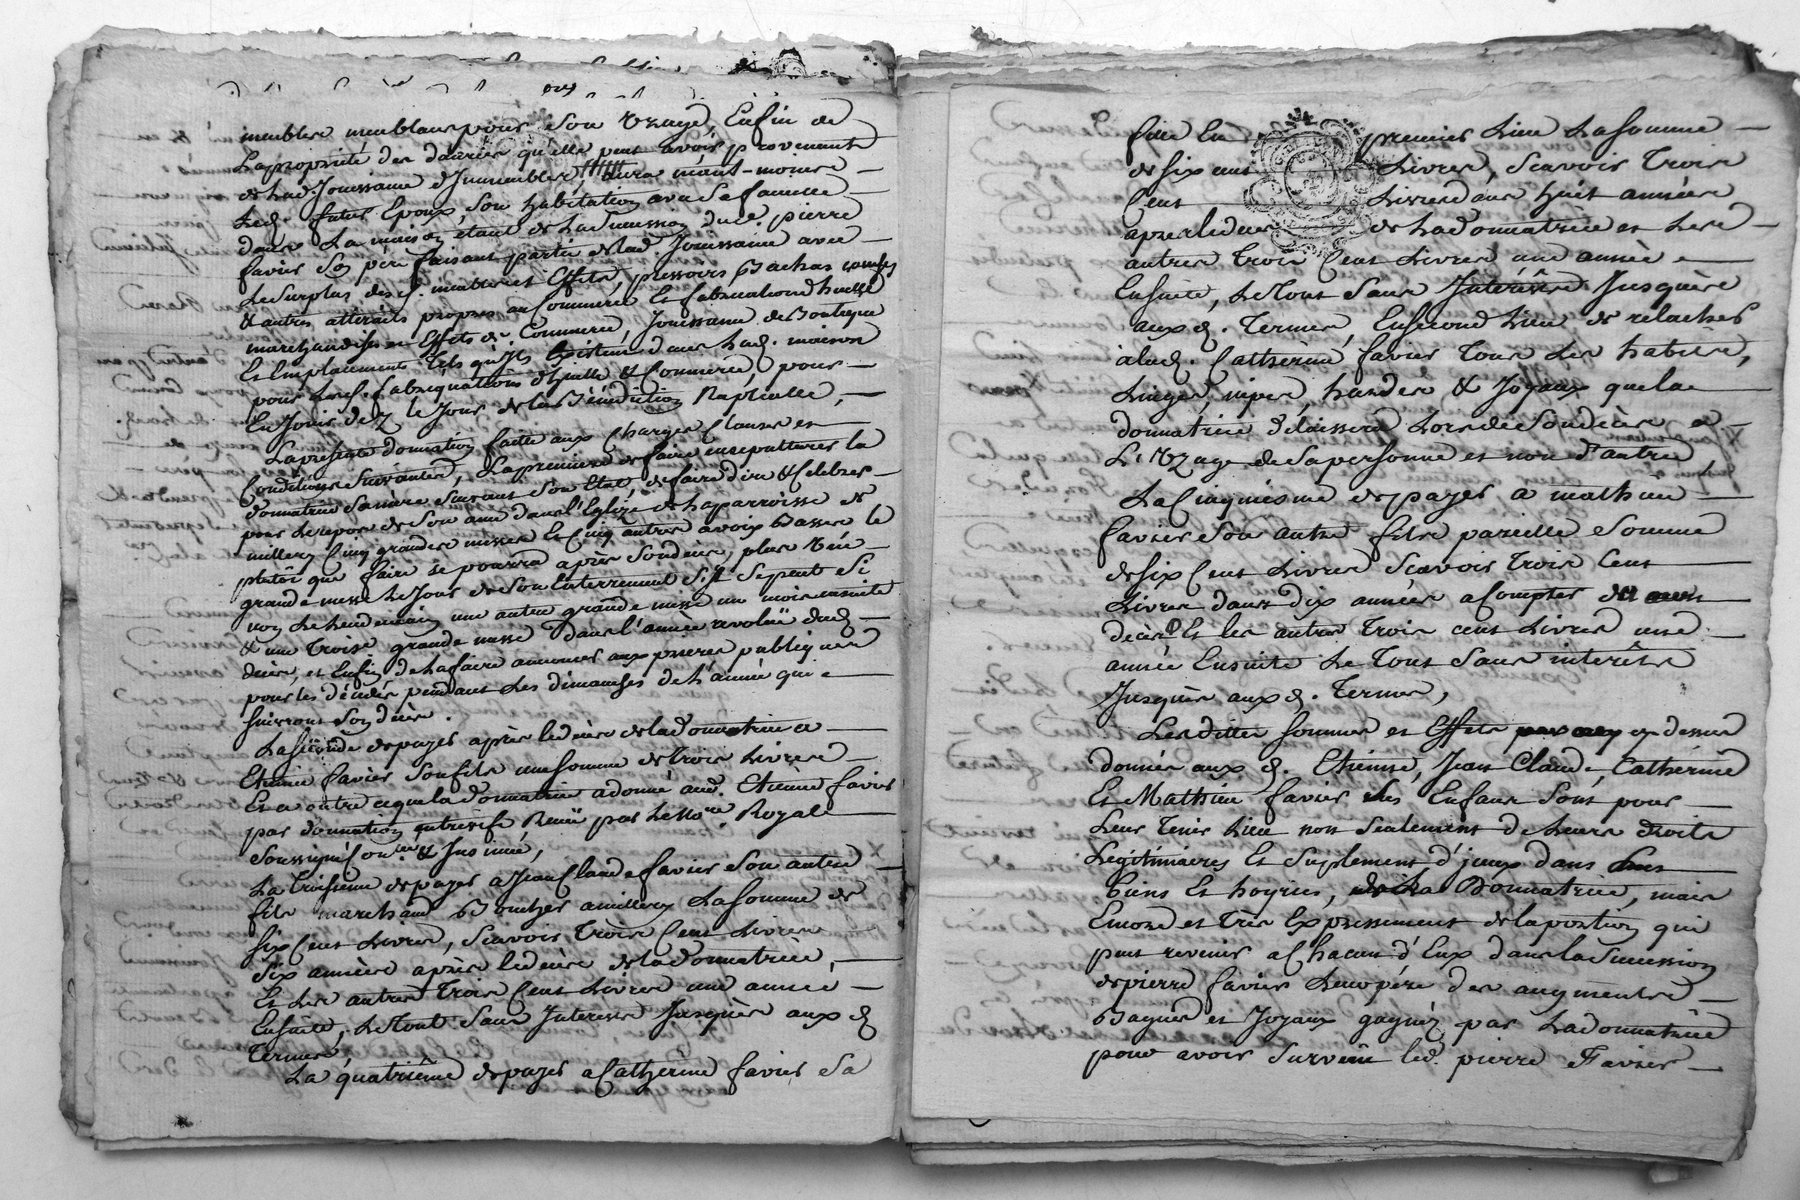 meublere meublans pour Son Uzage, Enfin de
La proprieté des danrées qu'elle peut avoir, provenants
de lad. Jouissance d'Immeubles, aura néant-moins
Led. futur Epoux, Son habitation avec Sa famille
dans La maison etant de La Succession dud. pierre
favier Son père faisant partie de lad. Jouissance avec
Le Surplus desd. meubles et Effets, pressoirs Bachas
& autres attirails propres au Commerce Et fabrications d'huille
marchandises en Effets de Commerce, Jouissance de Boutique
Et Emplacements Tels qu'Ils Existent dans lad. maison
pour Lesd. fabriquations d'huille & Commerce, pour
En Jouir dez le Jour de la Bénédiction Nuptialle,
La presente donation faitte aux Charges Clauses et
Conditions Suivantes, La premiere de faire ensepulturer la
donnatrice Sa mère Suivant Son Etat, de faire dire & Celebrer
pour Le repos de Son ame dans l'Eglize de la parroisse de
millery Cinq grandes messes Et Cinq autres a voix Basse le
plutôt que faire se pourra après Son décès, plus Une
grande messe Le Jour de Son Enterrement S'Il Se peut Si
non Le Lendemain une autre grande messe un mois ensuite
& une Troise grande messe dans l'année revolüe dud.
décès, et Enfin de La faire annoncer aux prieres publiques
pour les décédés pendant Les dimanches de L'année qui
Suivront Son décès.
La Seconde de payer après le décès de la donnatrice a
Etienne favier Son fils une Somme de Trois Livres
Et ce outre ce que la donnatrice a donné aud. Etienne favier
par donnation entrevifs Reçuë par Le No.re Royal
Soussigné Con.lée & Insinué,
La Troisieme de payer a Jean Claude favier Son autre
fils marchand Boucher a millery La Somme de
Six Cent Livres, Scavoir Trois Cent Livres
Six années après le décès de la donnatrice,
Et Les autres Trois Cent Livres une année
Ensuite, Le Tout Sans Interests Jusques auxd.
Termes,
La quatrième de payer a Catherine favier Sa
fille En premier Lieu La Somme
de Six cent Livres, Scavoir Trois
Cent Livres dans huit années
après le décès de La donnatrice et Les
autres Trois Cent Livres une année
Ensuite, Le Tout Sans Intérêts Jusques
auxd. Termes, En Second Lieu de relacher
à lad. Catherine favier Tous Les habits,
Linges, nipes, hardes & Joyaux que la
donnatrice délaissera Lors de Son décès a
L'Uzage de Sa personne et non d'autre,
La Cinquiesme de payer a mathieu
favier Son autre fils pareille Somme
de Six Cent Livres Scavoir Trois Cent
Livres dans dix années a Compter du
décès Et les autres Trois cent Livres une
année Ensuite Le Tout Sans interêts
Jusques auxd. Termes,
Lesdittes Sommes et Effets cy dessus
donnés auxd. Etienne, Jean Claude, Catherine
Et Mathieu favier Ses Enfans Sont pour
Leur Tenir Lieu non Seulement de Leurs droits
Légitimaires Et Suplement d'jceux dans Les
Biens Et hoyries, de La Donnatrice, mais
Encore et Très Expressement de la portion qui
peut revenir a Chacun d'Eux dans la Succession
de pierre favier Leur père des augments
Bagues et Joyaux gagnéz par La donnatrice
pour avoir Survécu led. pierre Favier